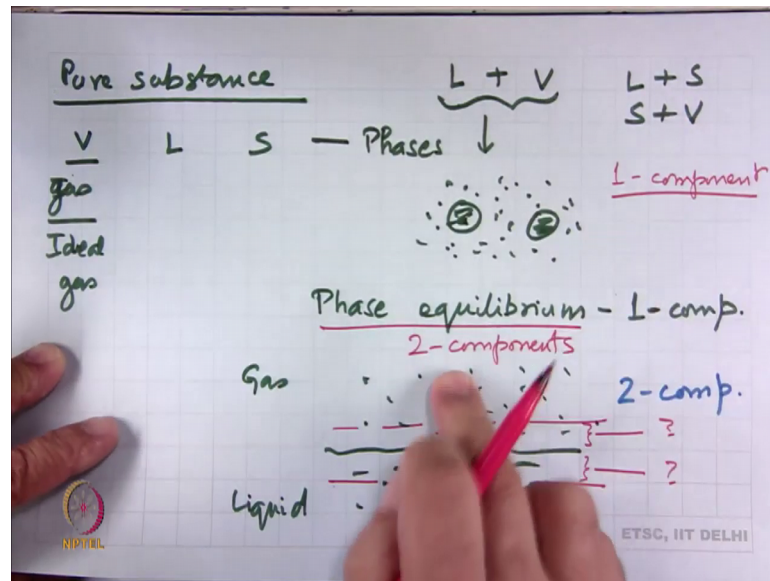 Pure substance
L + V
L + S
S + V
V L S — Phases
gas
1-component
Ideal
gas
Phase equilibrium - 1-comp.
2-components
Gas
2-comp.
?
?
Liquid
NPTEL
ETSC, IIT DELHI